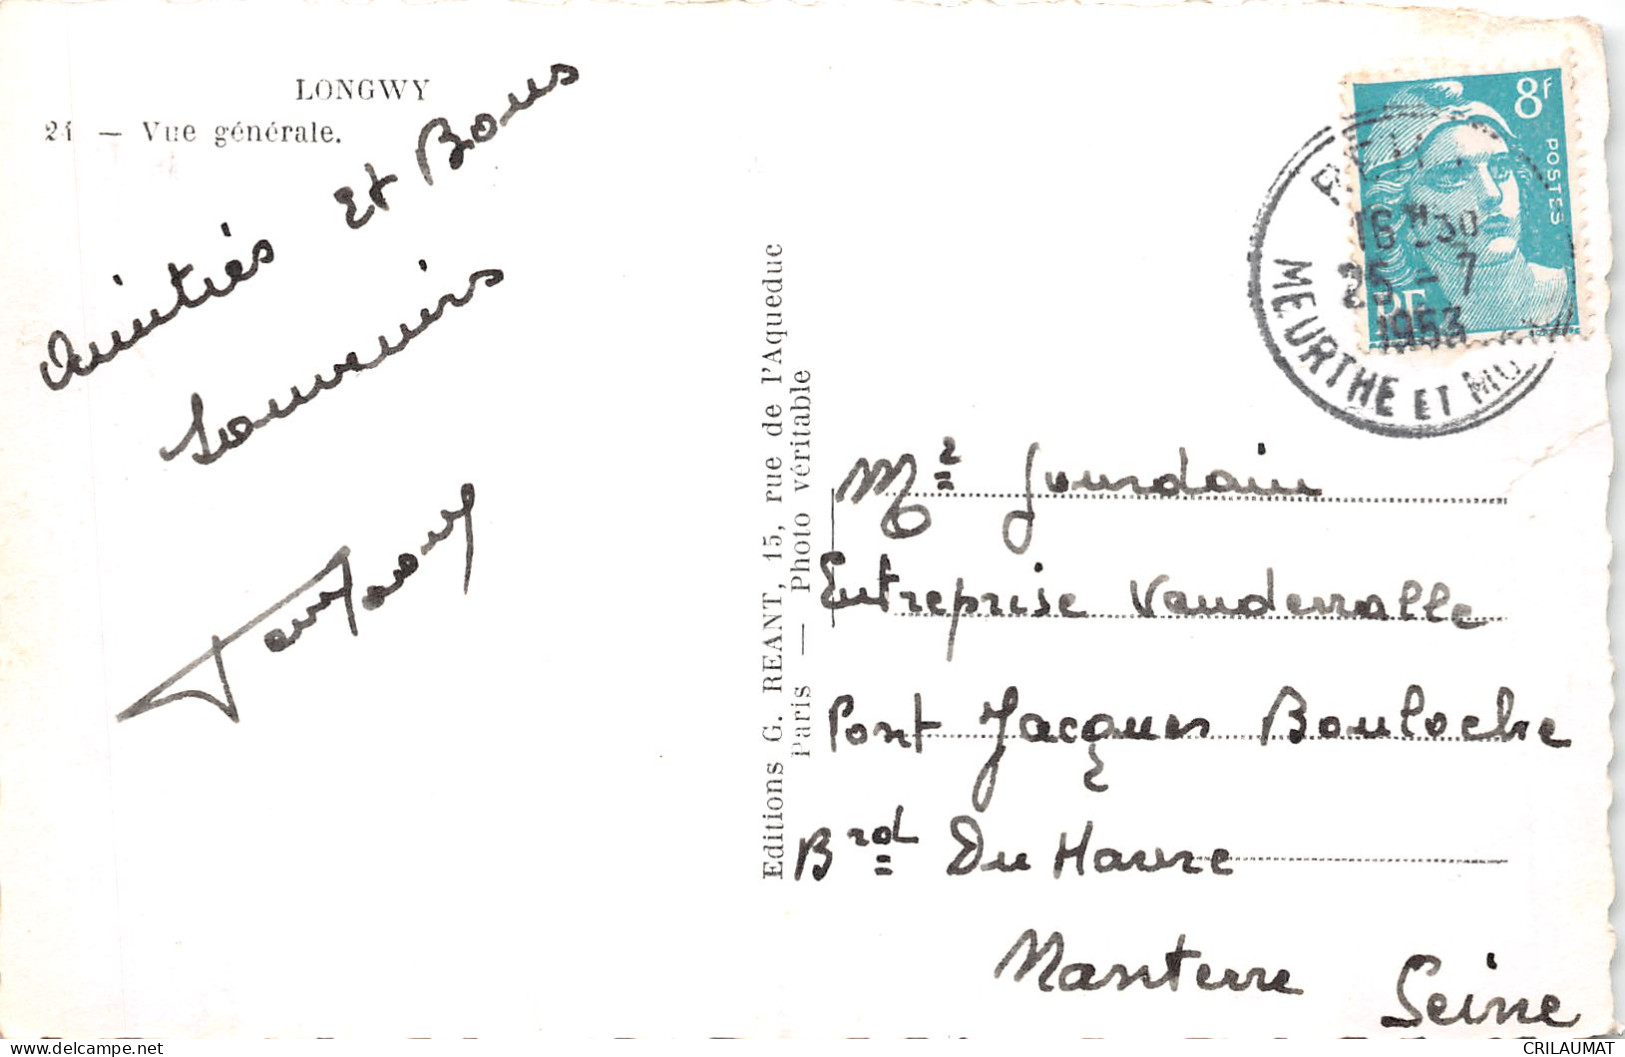 LONGWY
21 — Vue générale.
Amitiés Et Bons
Souvenirs
Editions G. REANT, 15, rue de l'Aqueduc
Paris — Photo véritable
8f
POSTES
RF
16H30
25-7
1953
MEURTHE ET MO
Mr Jourdain
Entreprise Vanderralle
Pont Jacques Bouloche
Brd Du Havre
Nanterre
Seine
CRILAUMAT